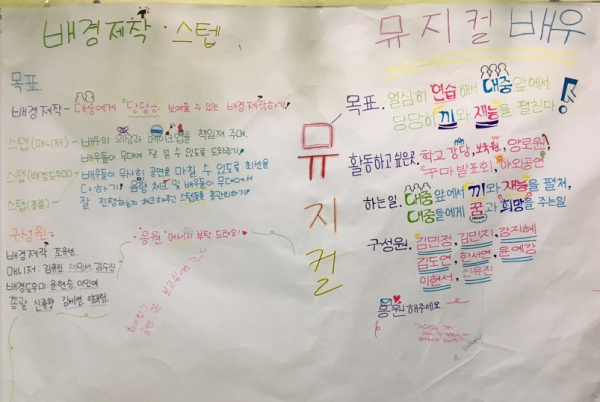 배경제작·스텝
목표
배경제작 - 대중에게 "당당히 보여줄 수 있는" 배경제작하기!
스텝(매니저) - 배우의 의상과 메이크업을 책임져 주며,
배우들이 무대에 잘 설 수 있도록 도와주기!
스텝(배경도우미) - 배우들이 무사히 공연을 마칠 수 있도록 최선을
다하기!
스텝(총괄) - 음향 체크 및 배우들이 무대에서
잘 진행하는지 체크해주고 스텝들을 총관리하기!
구성원
배경제작
매니저: 김유진
배경도우미
총괄
응원 메세지 부탁 드려요!
뮤
지
컬
뮤지컬 배우
목표. 열심히 연습해서 대중 앞에서
당당히 끼와 재능을 펼친다!
활동하고싶은곳. 학교 강당, 보육원, 양로원,
꾸마 발표회, 야외공연
하는일. 대중 앞에서 끼와 재능을 펼쳐,
대중들에게 꿈과 희망을 주는일
구성원. 김민정, 김민지, 강지혜
김도연, 한서연, 윤예강
이현서, 신유진
응원해주세요